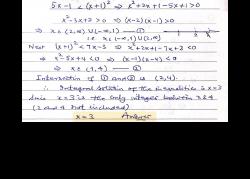 5x-1 < (x+1)² ⇒ x²+2x+1-5x+1>0
x²-3x+2>0 ⇒ (x-2)(x-1)>0
⇒ x ∈ (2,∞) ∪ (-∞,1) — ①
i.e x ∈ (-∞,1) ∪ (2,∞)
Next (x+1)² < 7x-3 ⇒ x²+2x+1-7x+3<0
⇒ x²-5x+4<0 ⇒ (x-1)(x-4)<0
⇒ x ∈ (1,4) — ②
Intersection of ① and ② is (2,4).
∴ Integral solution of the inequalities is x=3
Since x=3 is the only integer between 2 & 4
(2 and 4 not included)
x=3 Answer